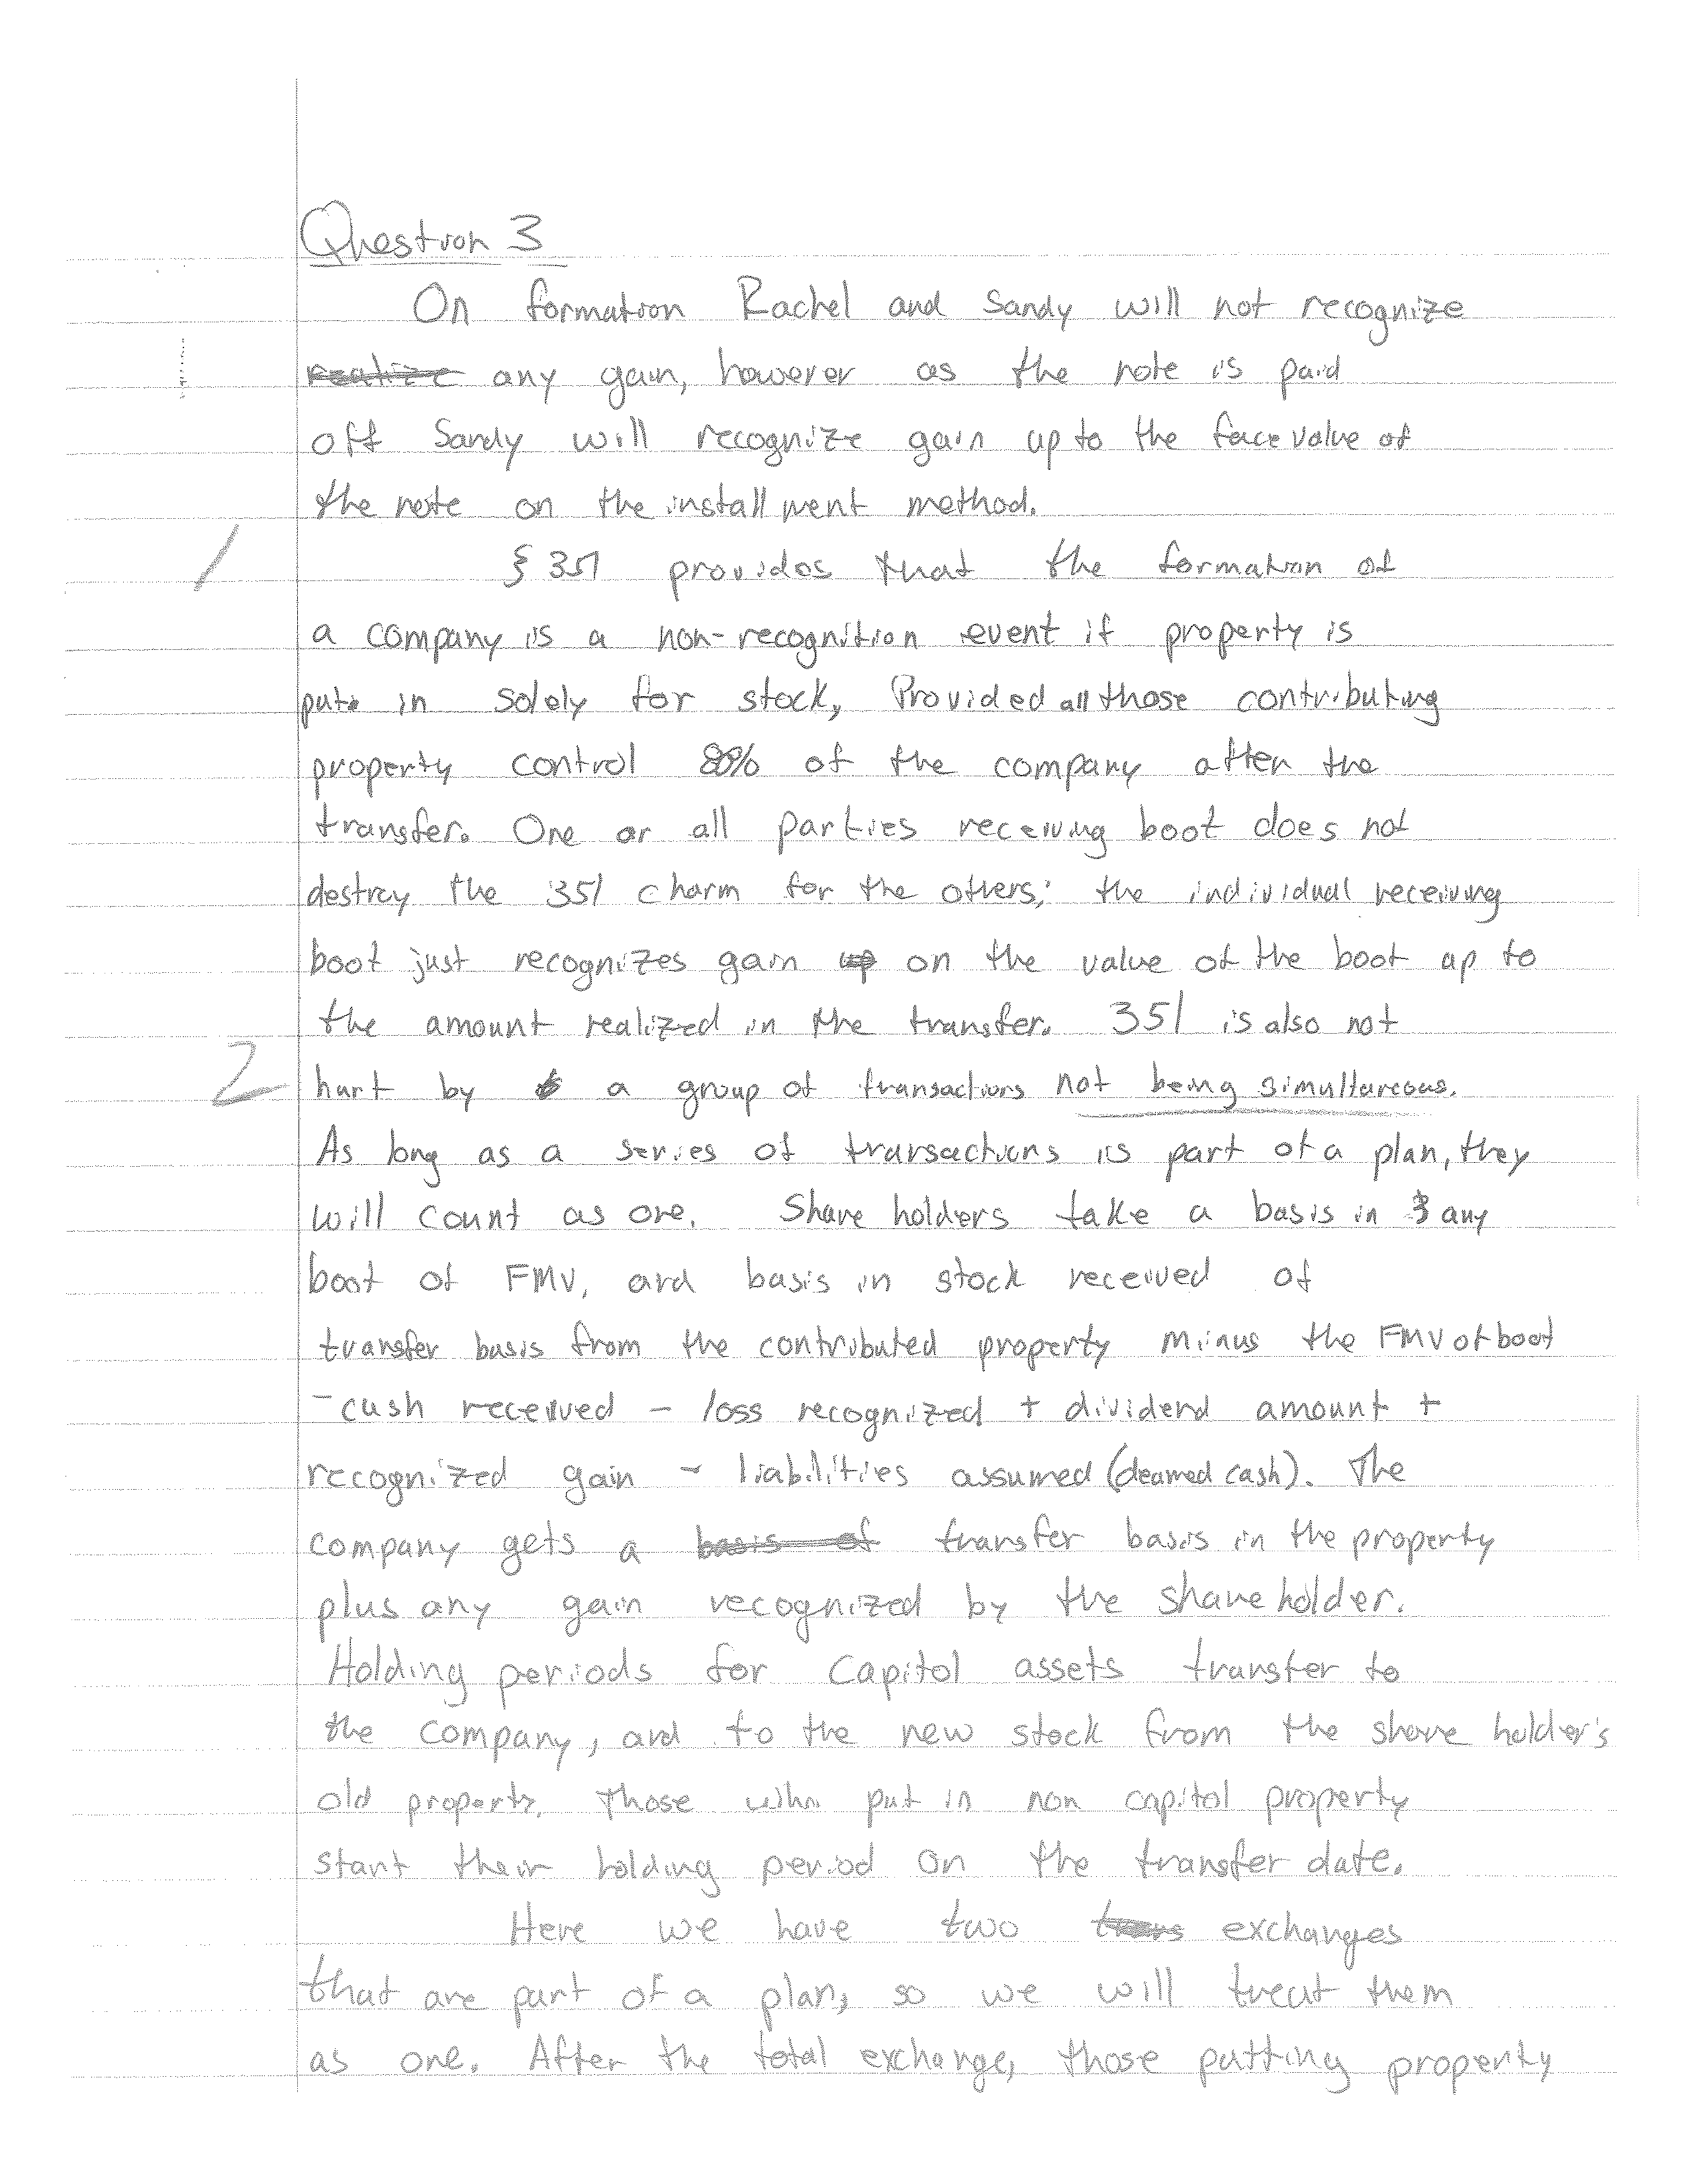 Question 3
On formation Rachel and Sandy will not recognize
realize any gain, however as the note is paid
off Sandy will recognize gain up to the face value of
the note on the installment method.
1
§ 351 provides that the formation of
a company is a non-recognition event if property is
put in solely for stock, Provided all those contributing
property control 80% of the company after the
transfer. One or all parties receiving boot does not
destroy the 351 charm for the others; the individual receiving
boot just recognizes gain up on the value of the boot up to
the amount realized in the transfer. 351 is also not
2
hurt by a group of transactions not being simultaneous.
As long as a series of transactions is part of a plan, they
will count as one. Share holders take a basis in any
boot of FMV, and basis in stock received of
transfer basis from the contributed property minus the FMV of boot
- cash received - loss recognized + dividend amount +
recognized gain - liabilities assumed (deamed cash). The
company gets a basis of transfer basis in the property
plus any gain recognized by the share holder.
Holding periods for Capitol assets transfer to
the company, and to the new stock from the share holder's
old property. Those who put in non capitol property
start their holding period on the transfer date.
Here we have two trans exchanges
that are part of a plan, so we will treat them
as one. After the total exchange, those putting property